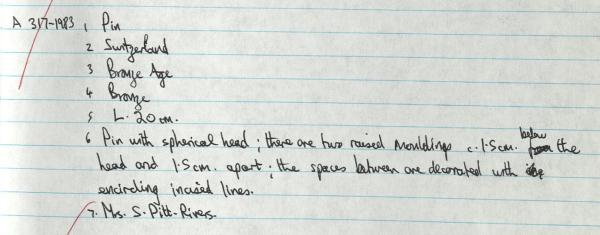 A 317-1983 1 Pin
2 Switzerland
3 Bronze Age
4 Bronze
5 L. 20 cm.
6 Pin with spherical head; there are two raised mouldings c. 1.5 cm. below the
head and 1.5 cm. apart; the spaces between are decorated with
encircling incised lines.
7. Mrs. S. Pitt-Rivers.